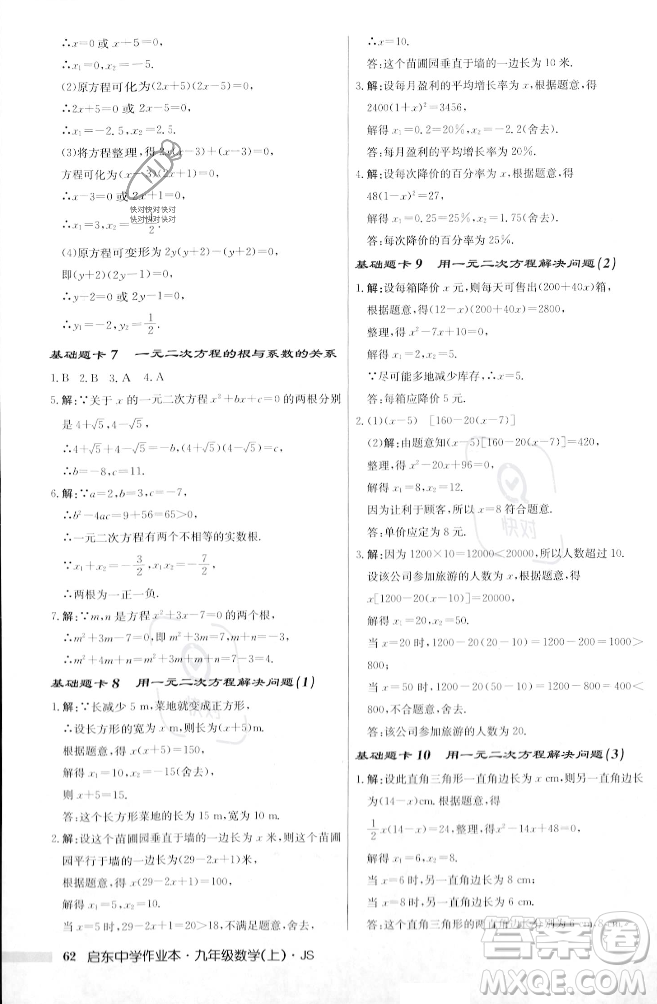 ∴x=0 或 x+5-4=0,
∴x₁=0, x₂=-1.
(2)原方程可化为(2x+5)(2x+5-5)=0,
∴2x+5=0 或 2x=0,
∴x₁=-2.5, x₂=0.
(3)将方程整理,得 2x(x-3)+(x-3)=0,
因式分解,得(x-3)(2x+1)=0,
∴x-3=0 或 2x+1=0,
∴x₁=3, x₂=-1/2.
(4)原方程可变形为 2y(y+2)-(y+2)=0,
即(y+2)(2y-1)=0,
∴y+2=0 或 2y-1=0,
∴y₁=-2, y₂=1/2.
基础题卡 7 一元二次方程的根与系数的关系
1. B 2. B 3. A 4. A
5. 解:∵关于 x 的一元二次方程的两根分别
是 4+√5, 4-√5,
∴4+√5+4-√5=-b, (4+√5)(4-√5)=c,
∴b=-8, c=11.
6. 解:∵a=2, b=3, c=-7,
∴b²-4ac=9+56=65>0,
∴一元二次方程有两个不相等的实数根.
∵x₁+x₂=-3/2, x₁x₂=-7/2,
∴两根为一正一负.
7. 解:∵m,n 是方程 x²+3x-7=0 的两个根,
∴m²+3m-7=0, m+n=-3,
∴m²+3m=7,
∴m²+4m+n=m²+3m+m+n=7-3=4.
基础题卡 8 用一元二次方程解决问题(1)
1. 解:∵长减少 5 m,菜地就变成正方形,
∴设长方形的宽为 x m,则长为(x+5) m.
根据题意,得 x(x+5)=150,
解得 x₁=10, x₂=-15(舍去),
则 x+5=15.
答:长方形菜地的长为 15 m,宽为 10 m.
2. 解:设这个苗圃园垂直于墙的一边长为 x 米,则苗圃
园平行于墙的一边长为(29-2x+1)米.
根据题意,得 x(29-2x+1)=100,
解得 x₁=5, x₂=10.
当 x=5 时,29-2x+1=20>18,不符合题意,舍去,
∴x=10.
答:这个苗圃园垂直于墙的一边长为 10 米.
3. 解:设每月盈利的平均增长率为 x,根据题意,得
2400(1+x)²=3456,
解得 x₁=0.2=20%, x₂=-2.2(舍去).
答:每月盈利的平均增长率为 20%.
4. 解:设每次降价的百分率为 x,根据题意,得
48(1-x)²=27,
解得 x₁=0.25=25%, x₂=1.75(舍去).
答:每次降价的百分率为 25%.
基础题卡 9 用一元二次方程解决问题(2)
1. 解:设每箱降价 x 元,则每天可售出(200+40x)箱,
根据题意,得(12-x)(200+40x)=2800,
整理,得 x²-7x+10=0,
解得 x₁=2, x₂=5.
∵要尽可能多地减少库存,∴x=5.
答:每箱应降价 5 元.
2. (1)(x-5) [160-20(x-7)]
(2)解:由题意知(x-5)[160-20(x-7)]=420,
整理,得 x²-20x+96=0,
解得 x₁=8, x₂=12.
因为让利于顾客,所以 x=8 符合题意.
答:单价应定为 8 元.
3. 解:因为 1200×10=12000<20000,所以人数超过 10.
设该公司参加旅游的人数为 x,根据题意,得
x[1200-20(x-10)]=20000,
解得 x₁=20, x₂=50.
当 x=20 时,1200-20(x-10)=1200-20×10=1000>
800;
当 x=50 时,1200-20(x-10)=1200-20×40=400<
800,不合题意,舍去.
答:该公司参加旅游的人数为 20.
基础题卡 10 用一元二次方程解决问题(3)
1. 解:设此直角三角形一直角边长为 x cm,则另一直角
边长为(14-x) cm.根据题意,得
1/2 x(14-x)=24,整理,得 x²-14x+48=0,
解得 x₁=6, x₂=8.
当 x=6 时,另一直角边长为 8 cm;
当 x=8 时,另一直角边长为 6 cm.
62 启东中学作业本·九年级数学(上)·JS